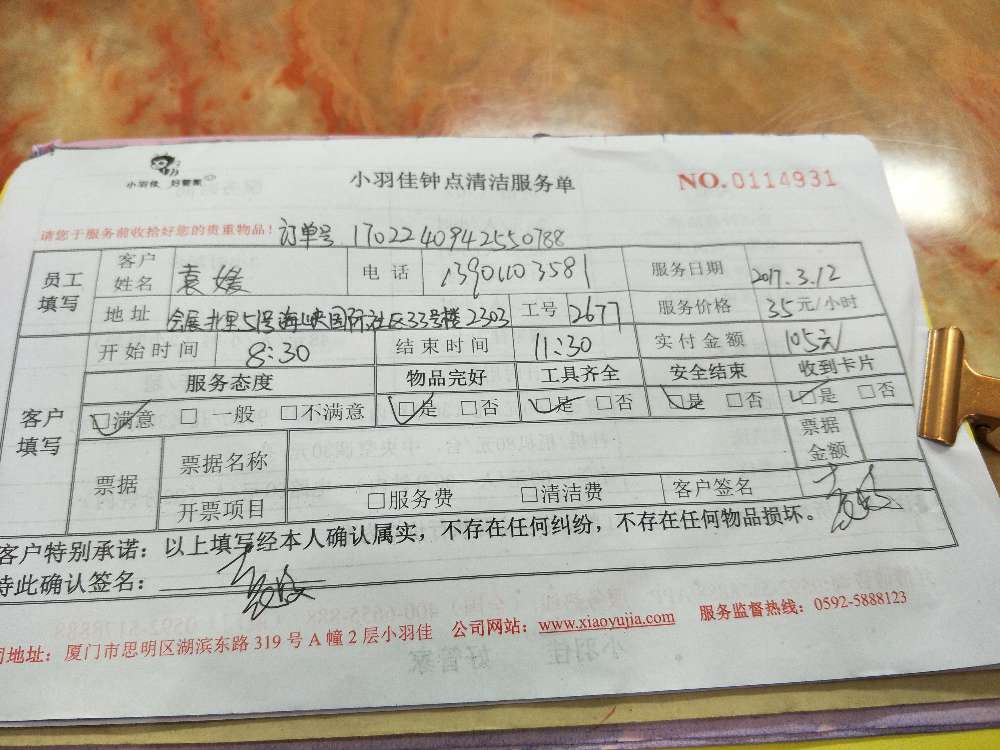 小羽佳 好管家
小羽佳钟点清洁服务单
NO.0114931
请您于服务前收拾好您的贵重物品! 订单号 1702240942550788
员工填写 客户姓名 袁媛 电话 13901103581 服务日期 2017.3.12
地址 会展北里51号海峡国际社区33号楼2303 工号 2677 服务价格 35元/小时
开始时间 8:30 结束时间 11:30 实付金额 105元
客户填写 服务态度 物品完好 工具齐全 安全结束 收到卡片
☑满意 □一般 □不满意 ☑是 □否 ☑是 □否 ☑是 □否 ☑是 □否
票据 票据名称 票据金额
开票项目 □服务费 □清洁费 客户签名
客户特别承诺:以上填写经本人确认属实,不存在任何纠纷,不存在任何物品损坏。
特此确认签名:
司地址:厦门市思明区湖滨东路319号A幢2层小羽佳 公司网站:www.xiaoyujia.com 服务监督热线:0592-5888123